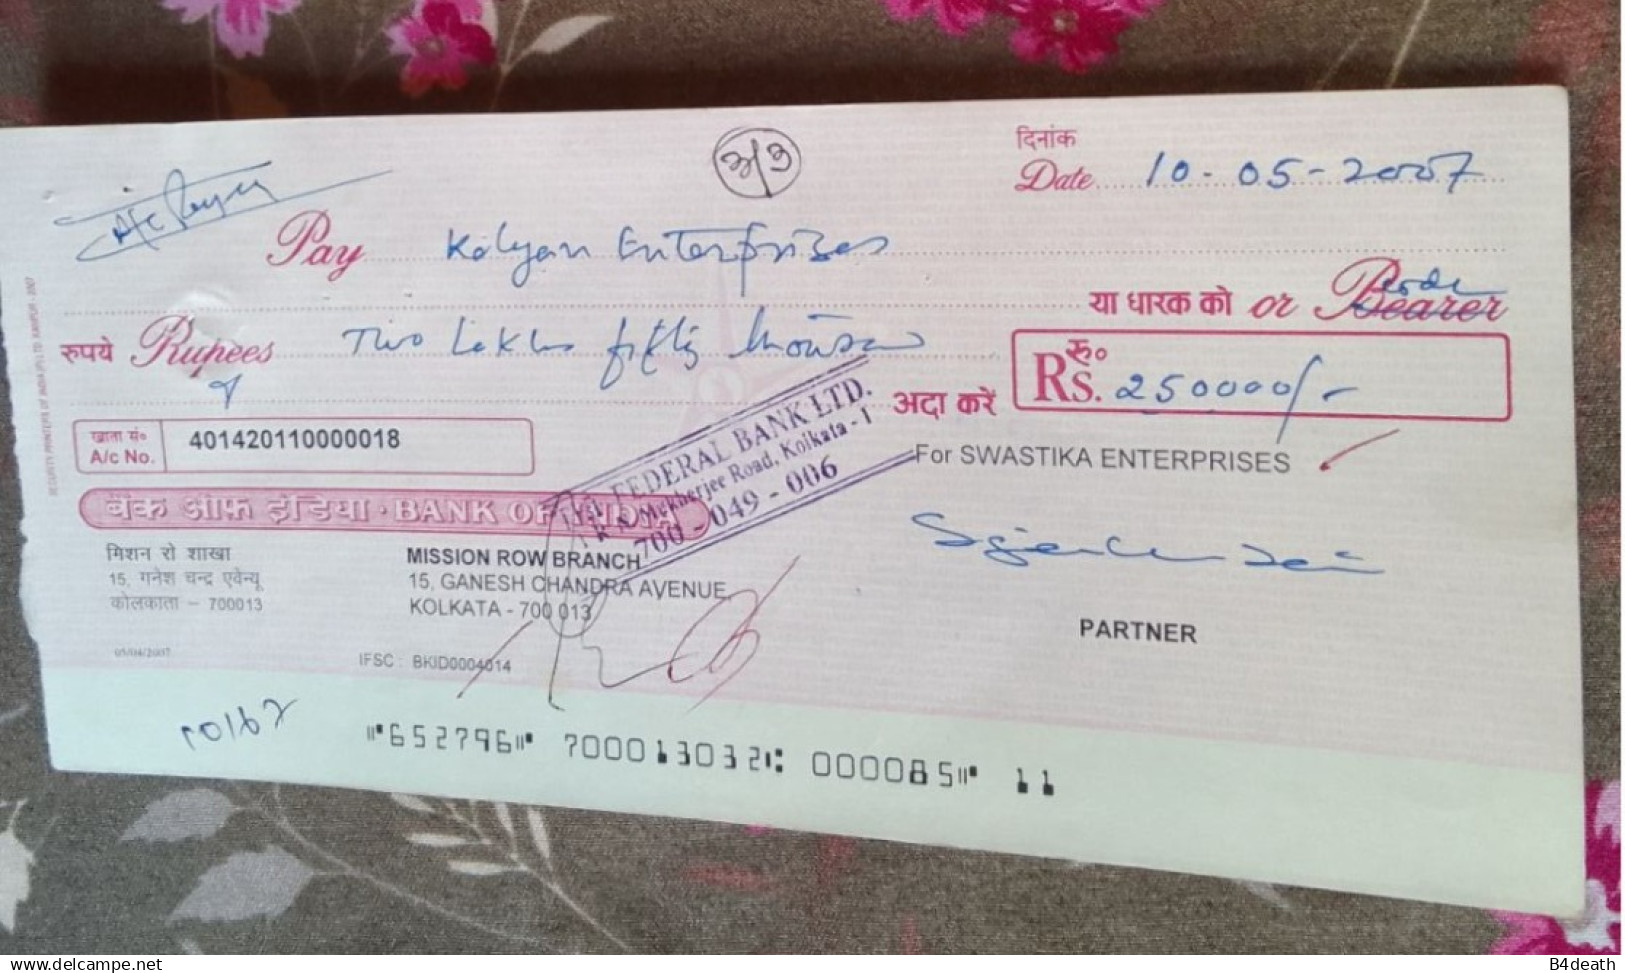 दिनांक
Date 10-05-2007
A/c Payee
Pay Kalyan Enterprises
या धारक को or Bearer
रुपये Rupees Two Lakhs fifty thousan
अदा करें
रु० Rs. 250000/-
खाता सं०
A/c No. 401420110000018
For SWASTIKA ENTERPRISES
FEDERAL BANK LTD.
R N Mukherjee Road, Kolkata - 1
700 - 049 - 006
बैंक ऑफ़ इंडिया · BANK OF INDIA
मिशन रो शाखा
15, गनेश चन्द्र एवेन्यू
कोलकाता – 700013
MISSION ROW BRANCH
15, GANESH CHANDRA AVENUE
KOLKATA - 700 013
PARTNER
05/04/2007
IFSC : BKID0004014
⑈652796⑈ 700013032⑆ 000085⑈ 11
www.delcampe.net
B4death